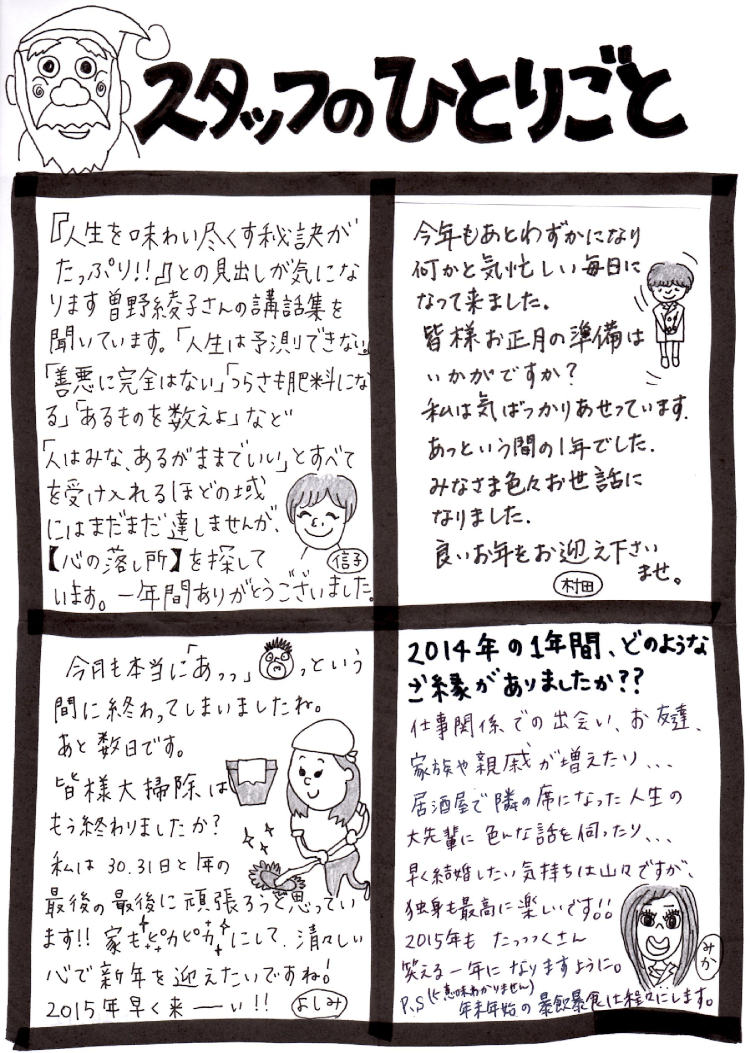 スタッフのひとりごと
『人生を味わい尽くす秘訣が
たっぷり!!』との見出しが気にな
ります曽野綾子さんの講話集を
聞いています。「人生は予測できない」
「善悪に完全はない」「つらさも肥料にな
る」「あるものを数えよ」など
「人はみな、あるがままでいい」とすべて
を受け入れるほどの域
にはまだまだ達しませんが、
【心の落し所】を探して
います。一年間ありがとうございました。
信子
今年もあとわずかになり
何かと気忙しい毎日に
なって来ました。
皆様お正月の準備は
いかがですか?
私は気ばっかりあせっています.
あっという間の1年でした.
みなさま色々お世話に
なりました.
良いお年をお迎え下さい
ませ。
村田
今月も本当に「あっっ」っという
間に終わってしまいましたね。
あと数日です。
皆様大掃除は
もう終わりましたか?
私は30.31日と年の
最後の最後に頑張ろうと思ってい
ます!! 家もピカピカにして、清々しい
心で新年を迎えたいですね!
2015年早く来ーい!!
よしみ
2014年の1年間、どのような
ご縁がありましたか??
仕事関係での出会い、お友達、
家族や親戚が増えたり、、、
居酒屋で隣の席になった人生の
大先輩に色んな話を伺ったり、、、
早く結婚したい気持ちは山々ですが、
独身も最高に楽しいです!!
2015年も たっっっくさん
笑える一年になりますように。
みか
P.S(←意味わかりません)
年末年始の暴飲暴食は程々にします。